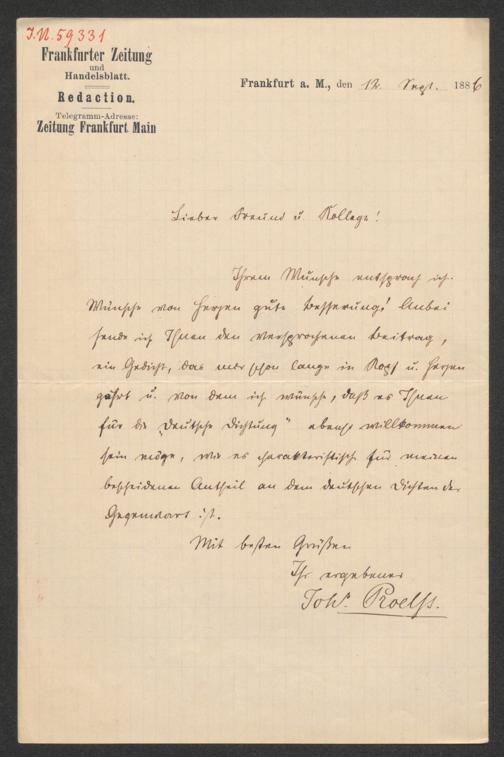 J.N. 59331
Frankfurter Zeitung
und
Handelsblatt.
Redaction.
Telegramm-Adresse:
Zeitung Frankfurt Main
Frankfurt a. M., den 12. Sept. 1886
Lieber Freund u. Kollege!
Ihrem Wunsche entsprach ich.
Wünsche von Herzen gute Besserung! Anbei
sende ich Ihnen den versprochenen Beitrag,
ein Gedicht, das mir schon lange in Kopf u. Herzen
gährt u. von dem ich wünsche, daß es Ihnen
für die "Deutsche Dichtung" ebenso willkommen
sein möge, wie es charakteristisch für meinen
bescheidenen Antheil an dem deutschen Dichten der
Gegenwart ist.
Mit besten Grüßen
Ihr ergebener
Johs. Proelß.